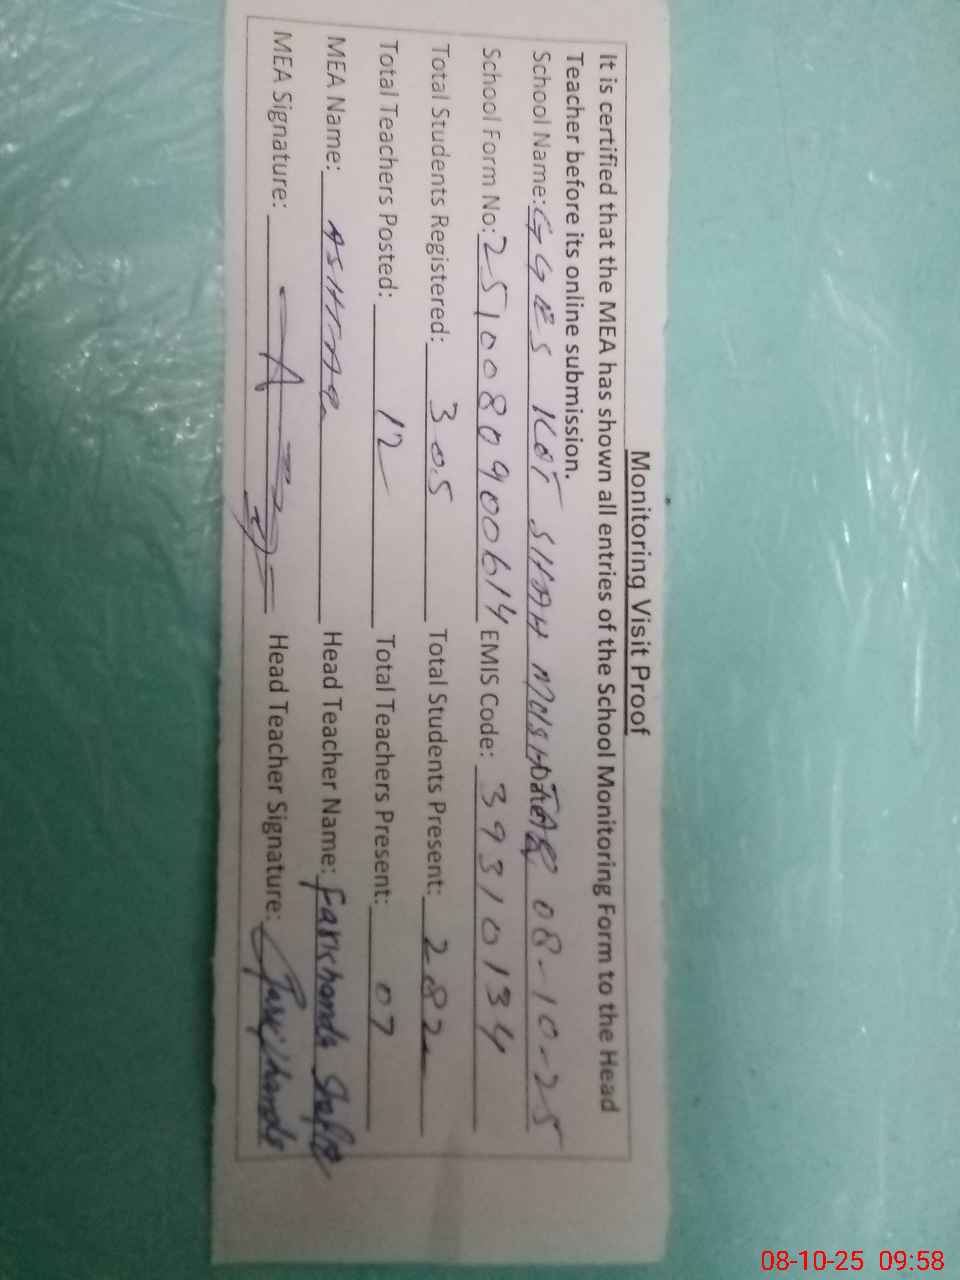 Monitoring Visit Proof
It is certified that the MEA has shown all entries of the School Monitoring Form to the Head
Teacher before its online submission.
School Name: GGES KOT SHAH MUSHTAR 08-10-25
School Form No: 2510080900614 EMIS Code: 39310134
Total Students Registered: 305 Total Students Present: 282
Total Teachers Posted: 12 Total Teachers Present: 07
MEA Name: ASHFAQ Head Teacher Name: Farkhanda Shafia
MEA Signature: Head Teacher Signature: Farkhanda
08-10-25 09:58